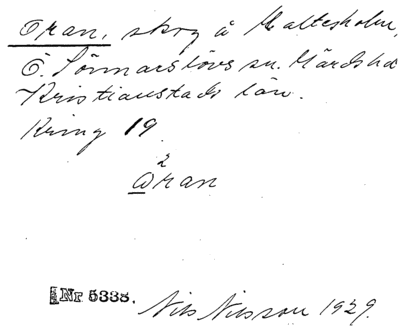 Oran, skog å Maltesholm,
Ö. Sönnarslövs sn. Gärds hd
Kristianstads län.
Kring 19
2
Oran
Nr 5338. Nils Nilsson 1929.